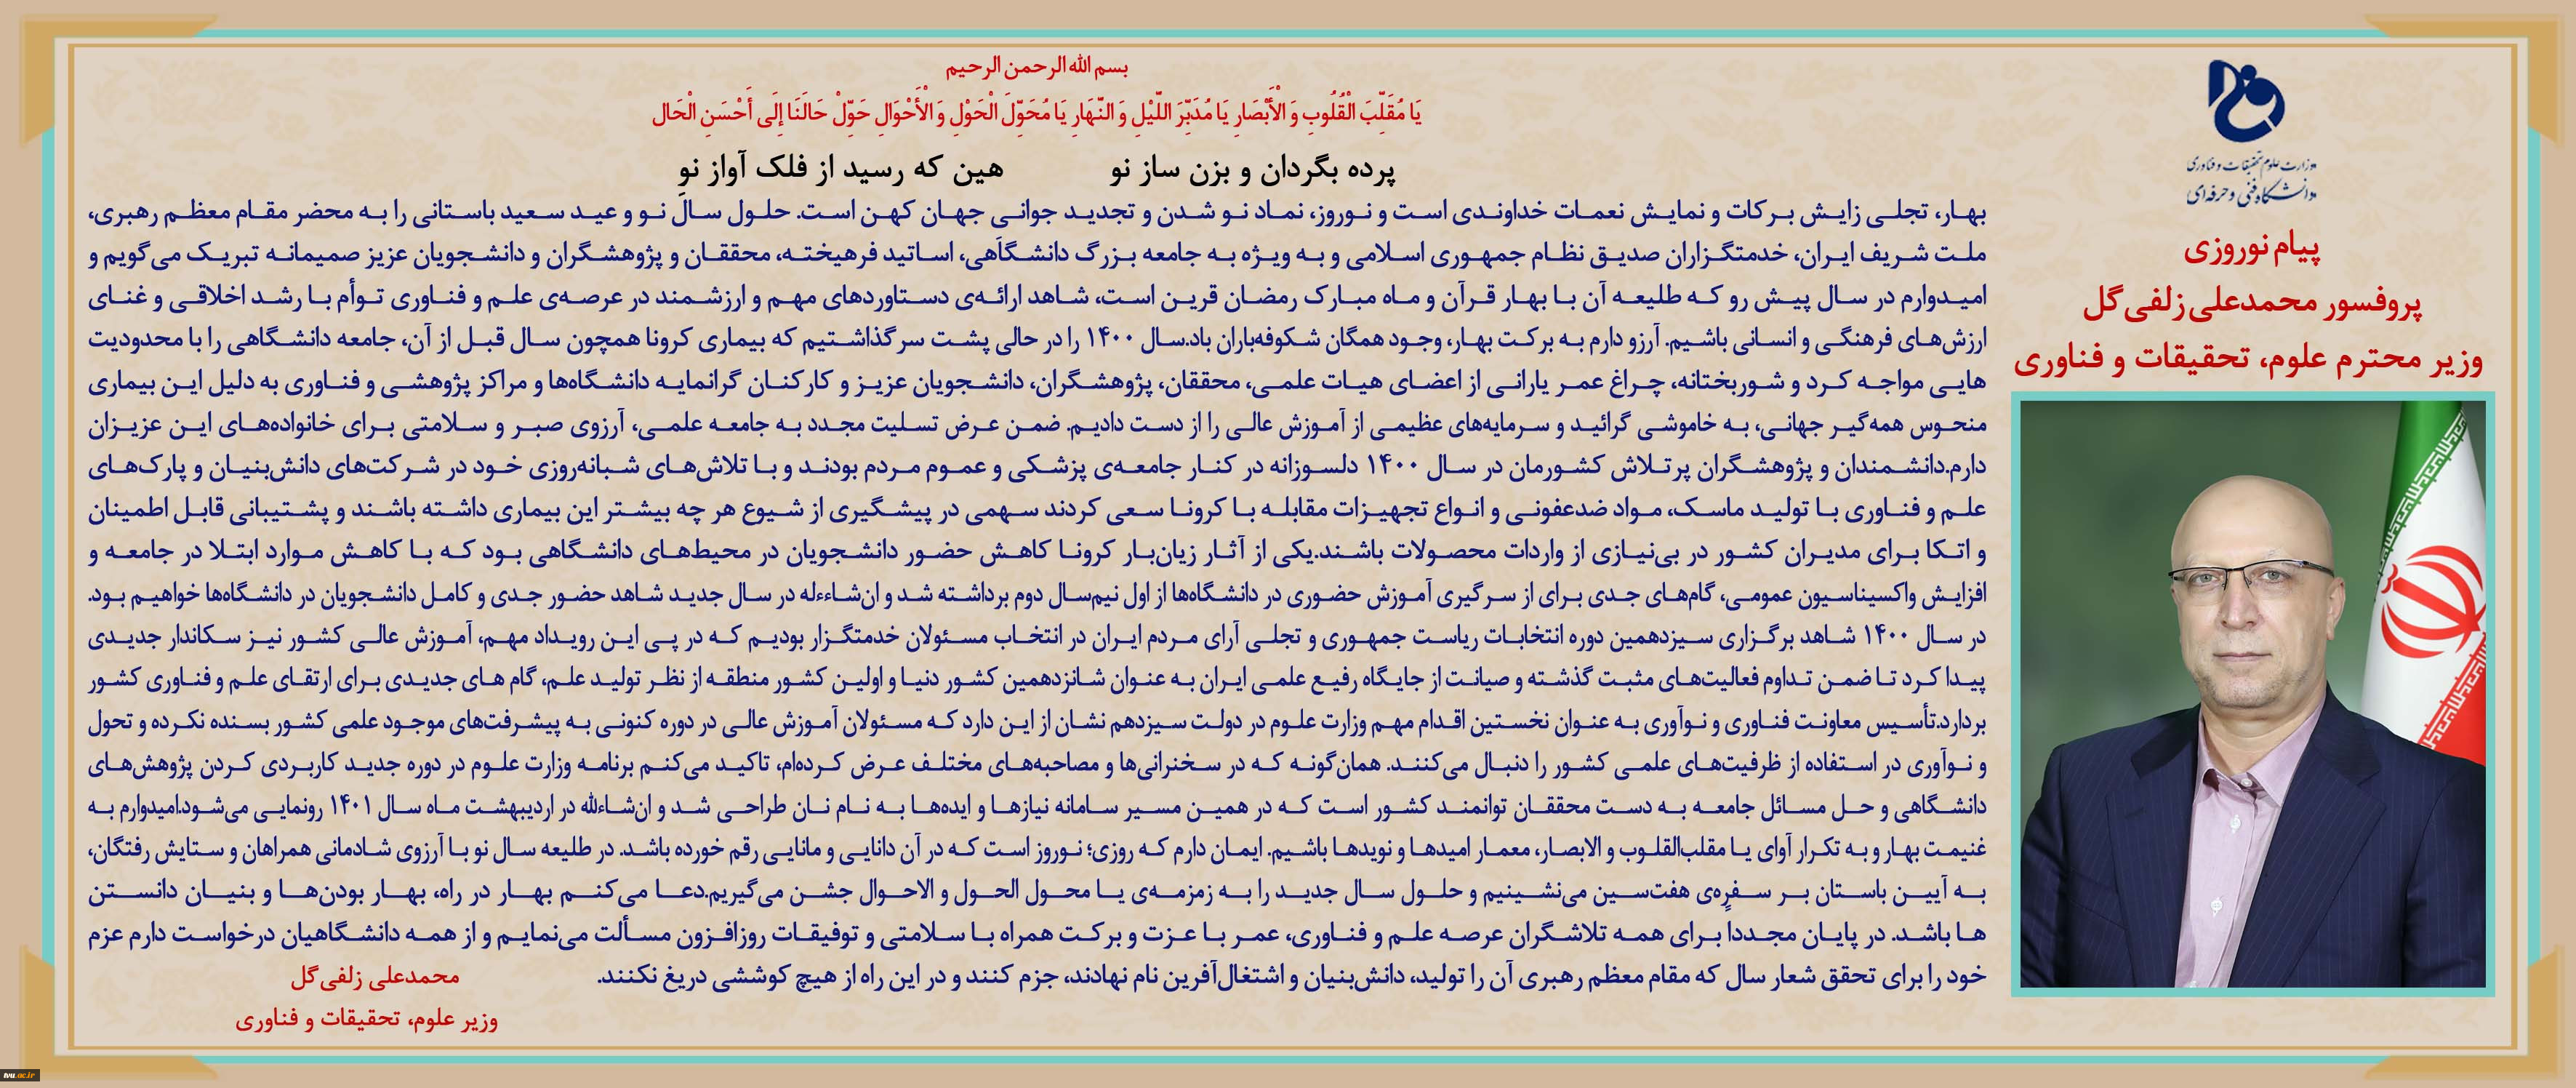 وزارت علوم تحقیقات و فناوری
دانشگاه فنی و حرفه‌ای
پیام نوروزی
پروفسور محمدعلی زلفی‌گل
وزیر محترم علوم، تحقیقات و فناوری
بسم الله الرحمن الرحیم
يَا مُقَلِّبَ الْقُلُوبِ وَ الْأَبْصَارِ يَا مُدَبِّرَ اللَّيْلِ وَ النَّهَارِ يَا مُحَوِّلَ الْحَوْلِ وَ الْأَحْوَالِ حَوِّلْ حَالَنَا إِلَى أَحْسَنِ الْحَال
پرده بگردان و بزن ساز نو هین که رسید از فلک آواز نو
بهار، تجلی زایش برکات و نمایش نعمات خداوندی است و نوروز، نماد نو شدن و تجدید جوانی جهان کهن است. حلول سال نو و عید سعید باستانی را به محضر مقام معظم رهبری،
ملت شریف ایران، خدمتگزاران صدیق نظام جمهوری اسلامی و به ویژه به جامعه بزرگ دانشگاهی، اساتید فرهیخته، محققان و پژوهشگران و دانشجویان عزیز صمیمانه تبریک می‌گویم و
امیدوارم در سال پیش رو که طلیعه آن با بهار قرآن و ماه مبارک رمضان قرین است، شاهد ارائه‌ی دستاوردهای مهم و ارزشمند در عرصه‌ی علم و فناوری توأم با رشد اخلاقی و غنای
ارزش‌های فرهنگی و انسانی باشیم. آرزو دارم به برکت بهار، وجود همگان شکوفه‌باران باد.سال ۱۴۰۰ را در حالی پشت سر گذاشتیم که بیماری کرونا همچون سال قبل از آن، جامعه دانشگاهی را با محدودیت
هایی مواجه کرد و شوربختانه، چراغ عمر یارانی از اعضای هیات علمی، محققان، پژوهشگران، دانشجویان عزیز و کارکنان گرانمایه دانشگاه‌ها و مراکز پژوهشی و فناوری به دلیل این بیماری
منحوس همه‌گیر جهانی، به خاموشی گرائید و سرمایه‌های عظیمی از آموزش عالی را از دست دادیم. ضمن عرض تسلیت مجدد به جامعه علمی، آرزوی صبر و سلامتی برای خانواده‌های این عزیزان
دارم.دانشمندان و پژوهشگران پرتلاش کشورمان در سال ۱۴۰۰ دلسوزانه در کنار جامعه‌ی پزشکی و عموم مردم بودند و با تلاش‌های شبانه‌روزی خود در شرکت‌های دانش‌بنیان و پارک‌های
علم و فناوری با تولید ماسک، مواد ضدعفونی و انواع تجهیزات مقابله با کرونا سعی کردند سهمی در پیشگیری از شیوع هر چه بیشتر این بیماری داشته باشند و پشتیبانی قابل اطمینان
و اتکا برای مدیران کشور در بی‌نیازی از واردات محصولات باشند.یکی از آثار زیان‌بار کرونا کاهش حضور دانشجویان در محیط‌های دانشگاهی بود که با کاهش موارد ابتلا در جامعه و
افزایش واکسیناسیون عمومی، گام‌های جدی برای از سرگیری آموزش حضوری در دانشگاه‌ها از اول نیم‌سال دوم برداشته شد و ان‌شاءءله در سال جدید شاهد حضور جدی و کامل دانشجویان در دانشگاه‌ها خواهیم بود.
در سال ۱۴۰۰ شاهد برگزاری سیزدهمین دوره انتخابات ریاست جمهوری و تجلی آرای مردم ایران در انتخاب مسئولان خدمتگزار بودیم که در پی این رویداد مهم، آموزش عالی کشور نیز سکاندار جدیدی
پیدا کرد تا ضمن تداوم فعالیت‌های مثبت گذشته و صیانت از جایگاه رفیع علمی ایران به عنوان شانزدهمین کشور دنیا و اولین کشور منطقه از نظر تولید علم، گام های جدیدی برای ارتقای علم و فناوری کشور
بردارد.تأسیس معاونت فناوری و نوآوری به عنوان نخستین اقدام مهم وزارت علوم در دولت سیزدهم نشان از این دارد که مسئولان آموزش عالی در دوره کنونی به پیشرفت‌های موجود علمی کشور بسنده نکرده و تحول
و نوآوری در استفاده از ظرفیت‌های علمی کشور را دنبال می‌کنند. همان‌گونه که در سخنرانی‌ها و مصاحبه‌های مختلف عرض کرده‌ام، تاکید می‌کنم برنامه وزارت علوم در دوره جدید کاربردی کردن پژوهش‌های
دانشگاهی و حل مسائل جامعه به دست محققان توانمند کشور است که در همین مسیر سامانه نیازها و ایده‌ها به نام نان طراحی شد و ان‌شاءالله در اردیبهشت ماه سال ۱۴۰۱ رونمایی می‌شود.امیدوارم به
غنیمت بهار و به تکرار آوای یا مقلب‌القلوب و الابصار، معمار امیدها و نویدها باشیم. ایمان دارم که روزی؛ نوروز است که در آن دانایی و مانایی رقم خورده باشد. در طلیعه سال نو با آرزوی شادمانی همراهان و ستایش رفتگان،
به آیین باستان بر سفره‌ی هفت‌سین می‌نشینیم و حلول سال جدید را به زمزمه‌ی یا محول الحول و الاحوال جشن می‌گیریم.دعا می‌کنم بهار در راه، بهار بودن‌ها و بنیان دانستن
ها باشد. در پایان مجدداً برای همه تلاشگران عرصه علم و فناوری، عمر با عزت و برکت همراه با سلامتی و توفیقات روزافزون مسألت می‌نمایم و از همه دانشگاهیان درخواست دارم عزم
خود را برای تحقق شعار سال که مقام معظم رهبری آن را تولید، دانش‌بنیان و اشتغال‌آفرین نام نهادند، جزم کنند و در این راه از هیچ کوششی دریغ نکنند.
محمدعلی زلفی‌گل
وزیر علوم، تحقیقات و فناوری
tvu.ac.ir